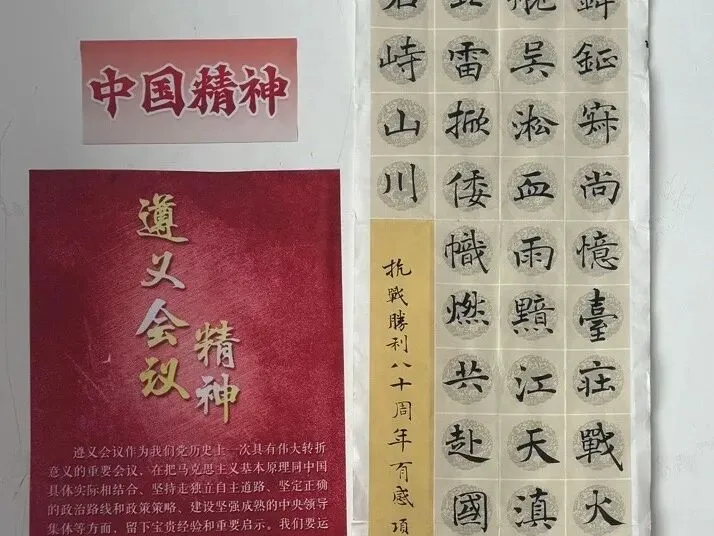 中国精神
遵义会议
精神
遵义会议作为我们党历史上一次具有伟大转折
意义的重要会议，在把马克思主义基本原理同中国
具体实际相结合、坚持走独立自主道路、坚定正确
的政治路线和政策策略、建设坚强成熟的中央领导
集体等方面，留下宝贵经验和重要启示。我们要运
鉦寂尚憶臺莊戰火
吳淞血雨黯江天滇
雷掀倭幟燃共赴國
峙山川
抗戰勝利八十周年有感項